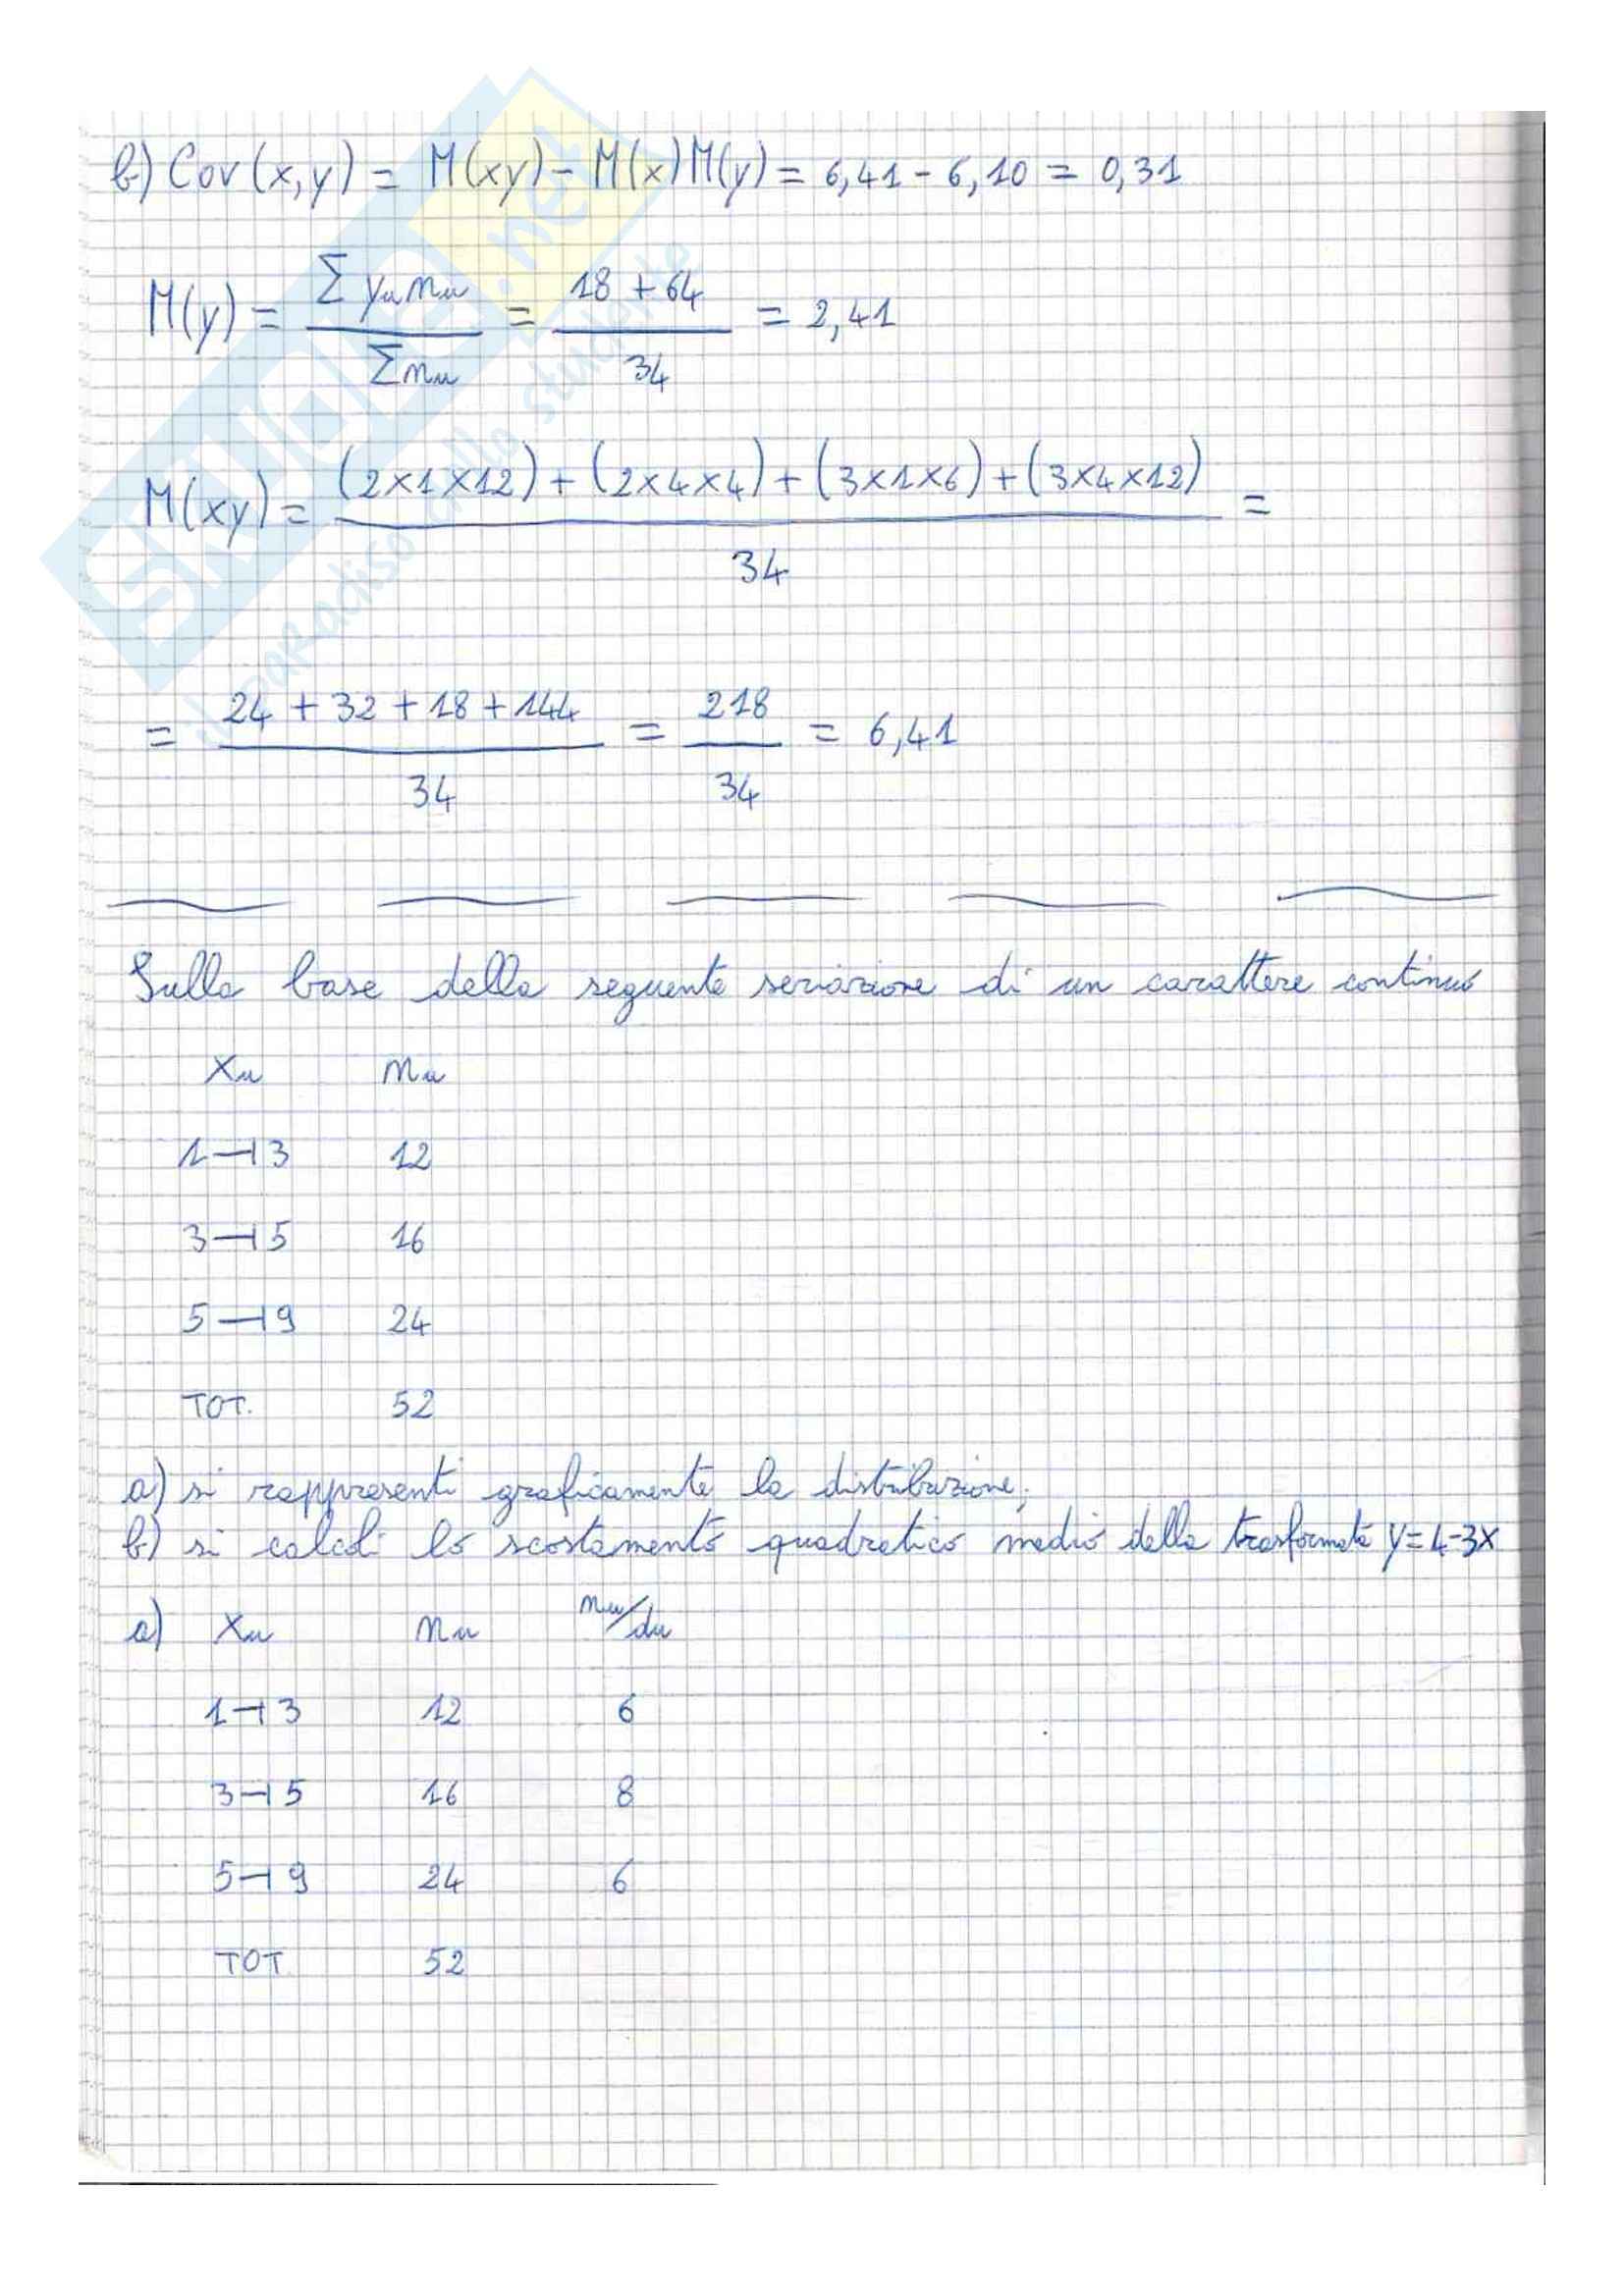 b) Cov(x,y) = M(xy) - M(x)M(y) = 6,41 - 6,10 = 0,31
M(y) = Σ yu nu / Σ nu = 18 + 64 / 34 = 2,41
M(xy) = (2x1x12) + (2x4x4) + (3x1x6) + (3x4x12) / 34 =
= 24 + 32 + 18 + 144 / 34 = 218 / 34 = 6,41
Sulla base della seguente seriazione di un carattere continuo
Xu nu
1⊣3 12
3⊣5 16
5⊣9 24
TOT. 52
a) si rappresenti graficamente la distribuzione;
b) si calcoli lo scostamento quadratico medio della trasformata y=4-3x
a) Xu nu nu/du
1⊣3 12 6
3⊣5 16 8
5⊣9 24 6
TOT 52
SKUOLA.net
il paradiso dello studente